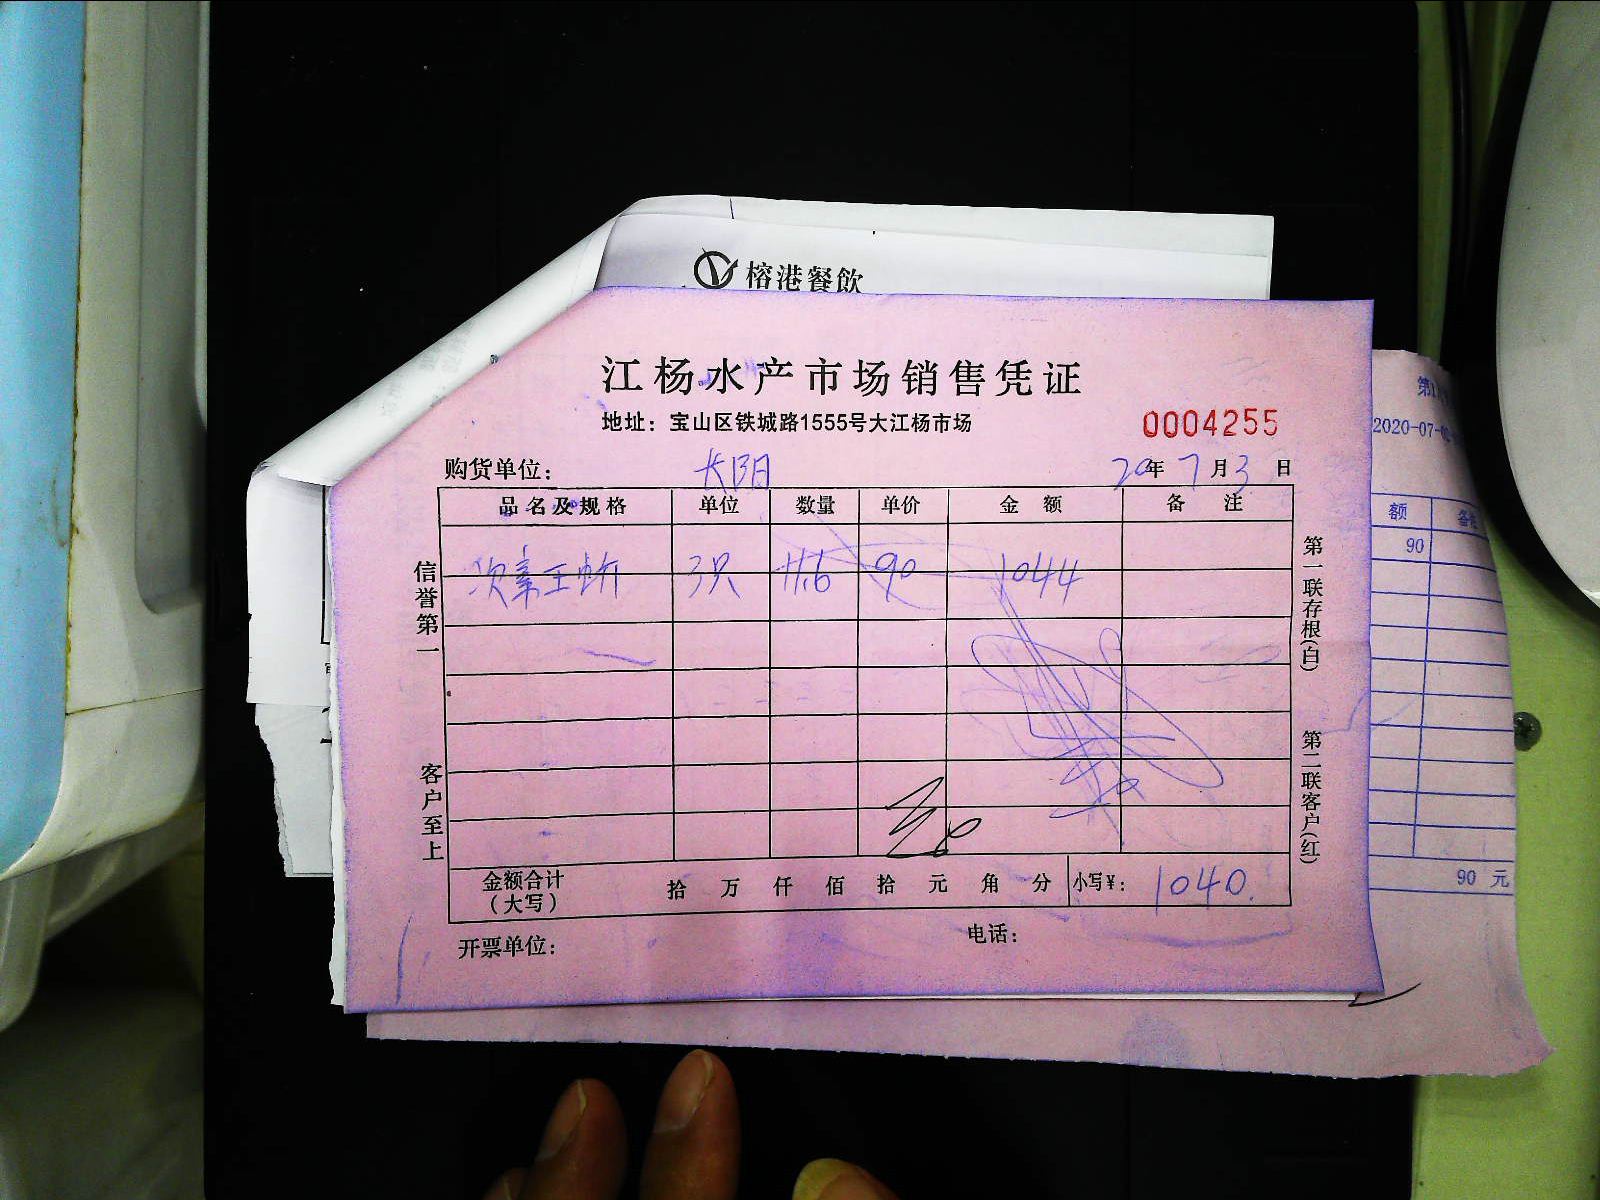 榕港餐飲
江杨水产市场销售凭证
地址：宝山区铁城路1555号大江杨市场
0004255
购货单位： 长阳 20年7月3日
品名及规格 单位 数量 单价 金额 备注
次帝王蟹 3只 11.6 90 1044
金额合计（大写） 拾 万 仟 佰 拾 元 角 分 小写¥： 1040.
开票单位： 电话：
信誉第一
客户至上
第一联存根(白)
第二联客户(红)
2020-07-0
额 备
90
90 元